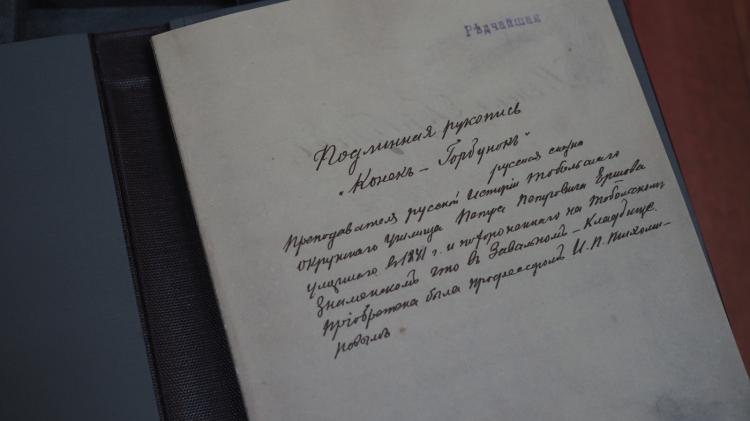 Рѣдчайшая
Подлинная рукопись
"Конекъ – Горбунокъ"
русская сказка
Преподавателя русской исторіи Тобольскаго
окружнаго училища Петра Петровича Ершова
умершаго въ 1841 г. и похороненнаго на Тобольскому
Знаменскомъ что въ Завальномъ – Кладбище.
Пріобретена была профессоромъ И. П. Тихоми–
ровымъ